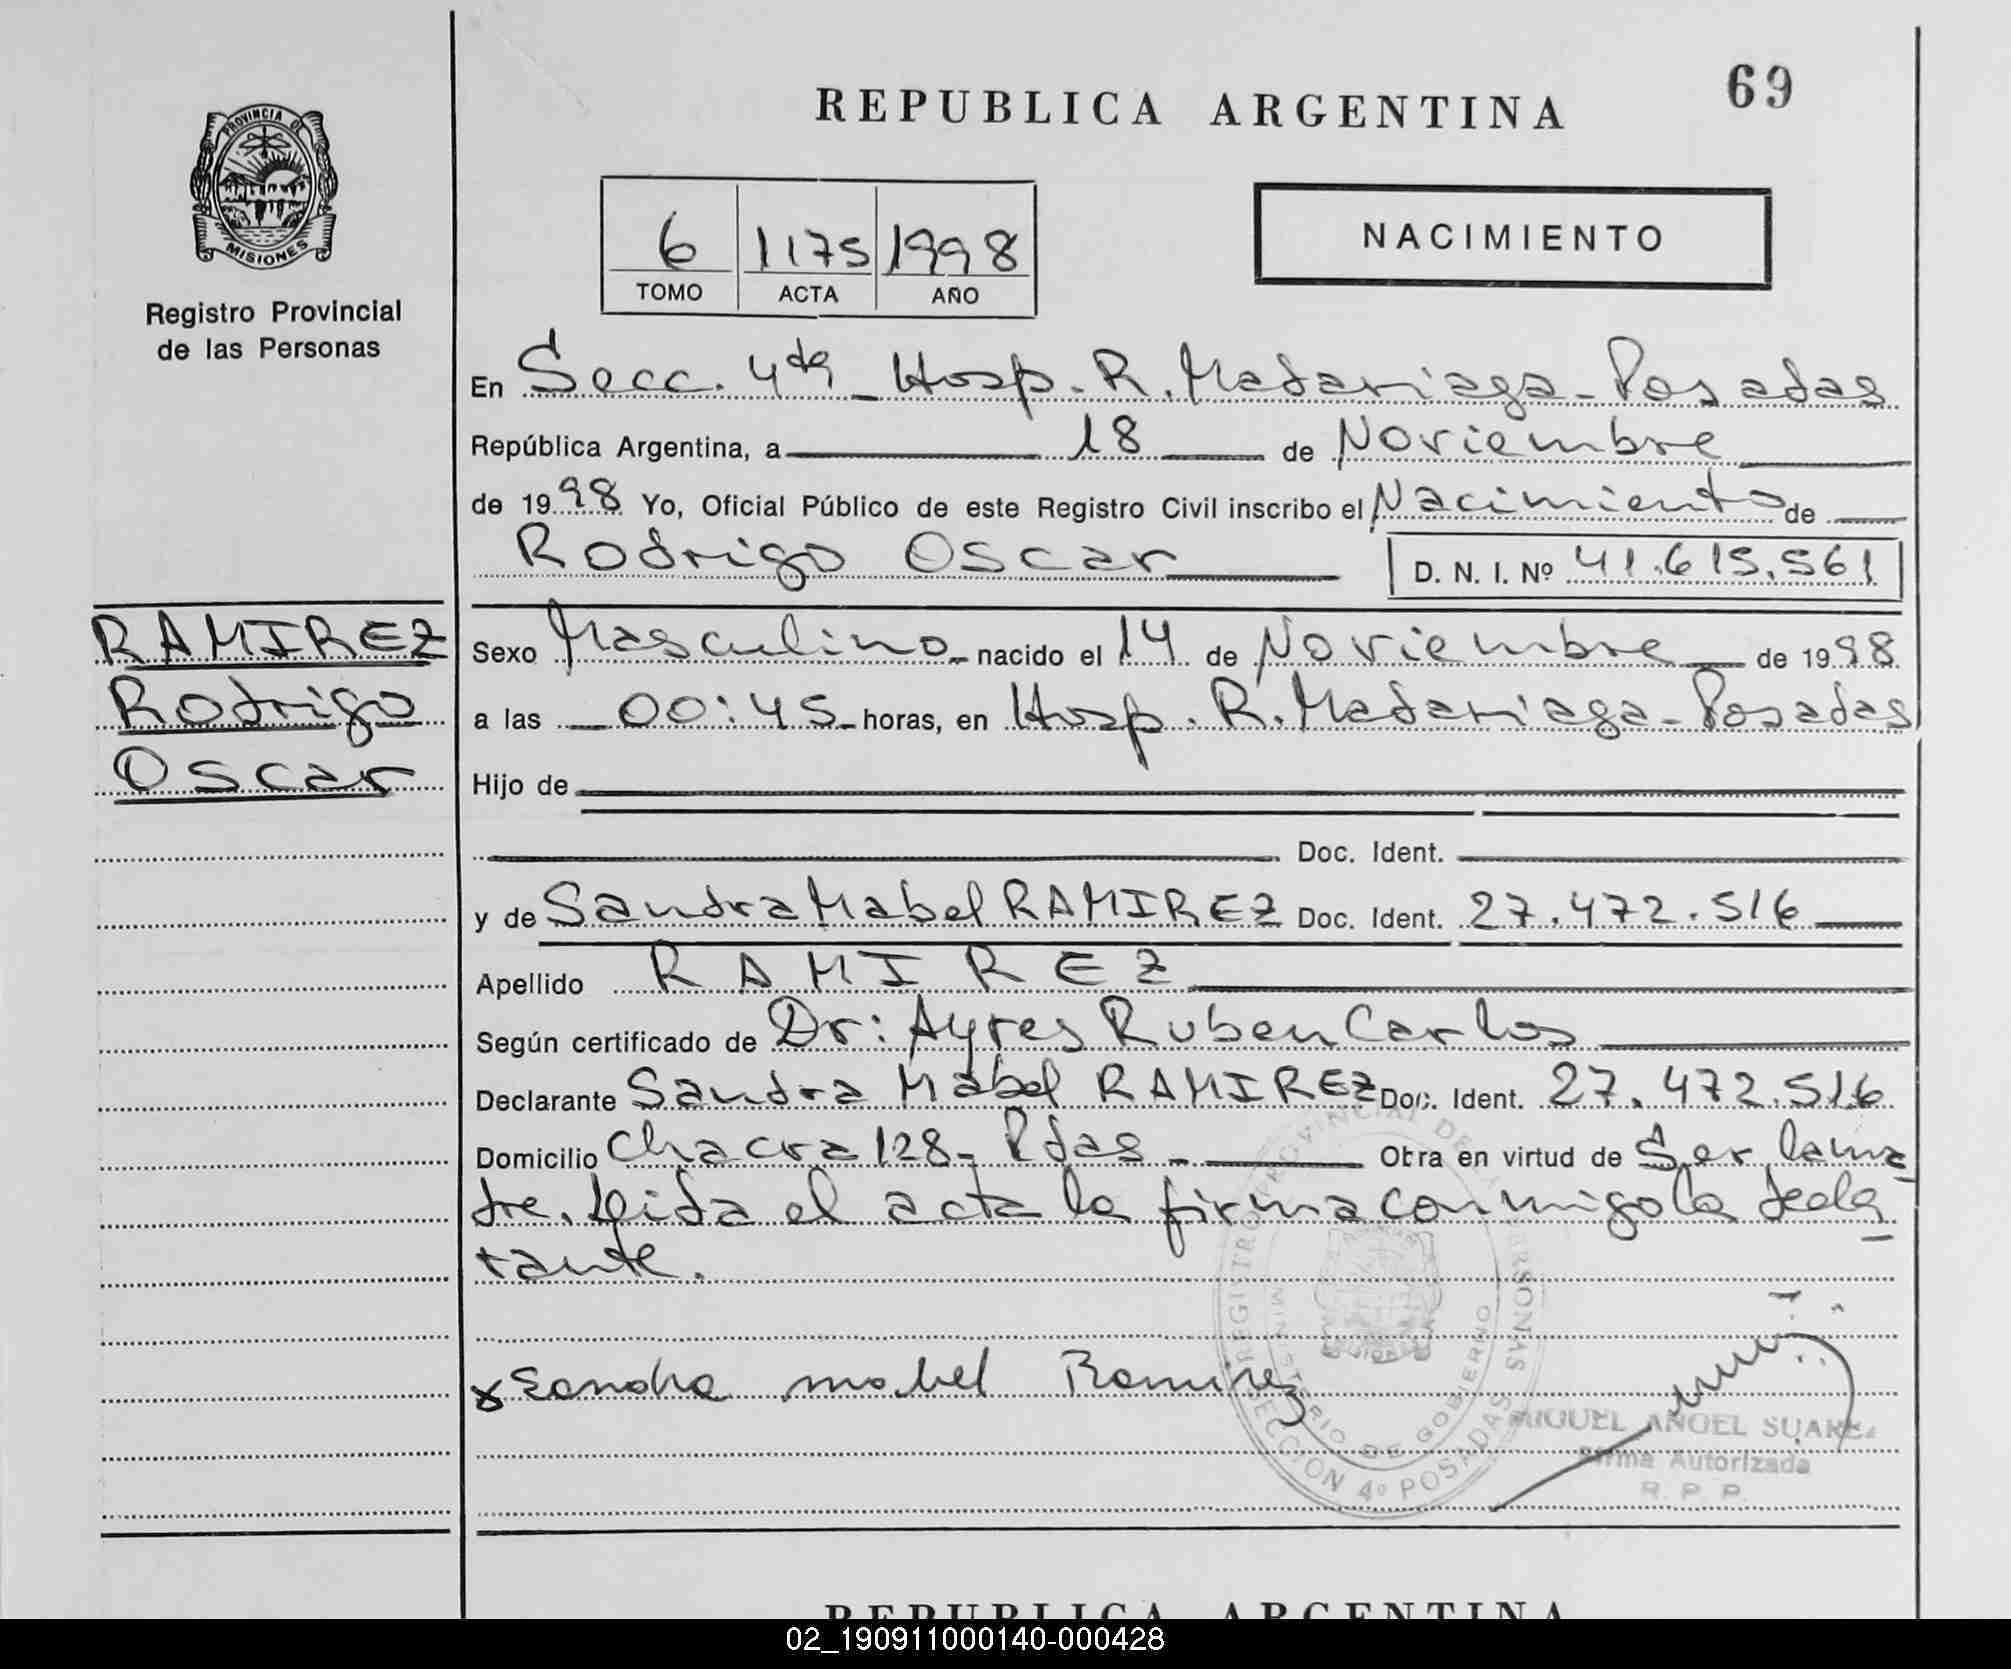 69
REPUBLICA ARGENTINA
PROVINCIA DE
MISIONES
Registro Provincial
de las Personas
6 1175 1998
TOMO ACTA AÑO
NACIMIENTO
En Secc. 4ta - Hosp. R. Madariaga - Posadas
República Argentina, a 18 de Noviembre
de 1998 Yo, Oficial Público de este Registro Civil inscribo el Nacimiento de
Rodrigo Oscar D. N. I. Nº 41.615.561
RAMIREZ
Rodrigo
Oscar
Sexo Masculino - nacido el 14 de Noviembre de 1998
a las 00:45 horas, en Hosp. R. Madariaga - Posadas
Hijo de
Doc. Ident.
y de Sandra Mabel RAMIREZ Doc. Ident. 27.472.516
Apellido RAMIREZ
Según certificado de Dr: Ayres Ruben Carlos
Declarante Sandra Mabel RAMIREZ Doc. Ident. 27.472.516
Domicilio Chacra 128 - Pdas - Obra en virtud de Ser la ma
dre. Leida el acta la firma conmigo la decla
rante.
x Sandra mabel Ramirez
REGISTRO PROVINCIAL DE LAS PERSONAS
MINISTERIO DE GOBIERNO
SECCION 4º POSADAS
MIGUEL ANGEL SUAREZ
Firma Autorizada
R. P. P.
REPUBLICA ARGENTINA
02_190911000140-000428